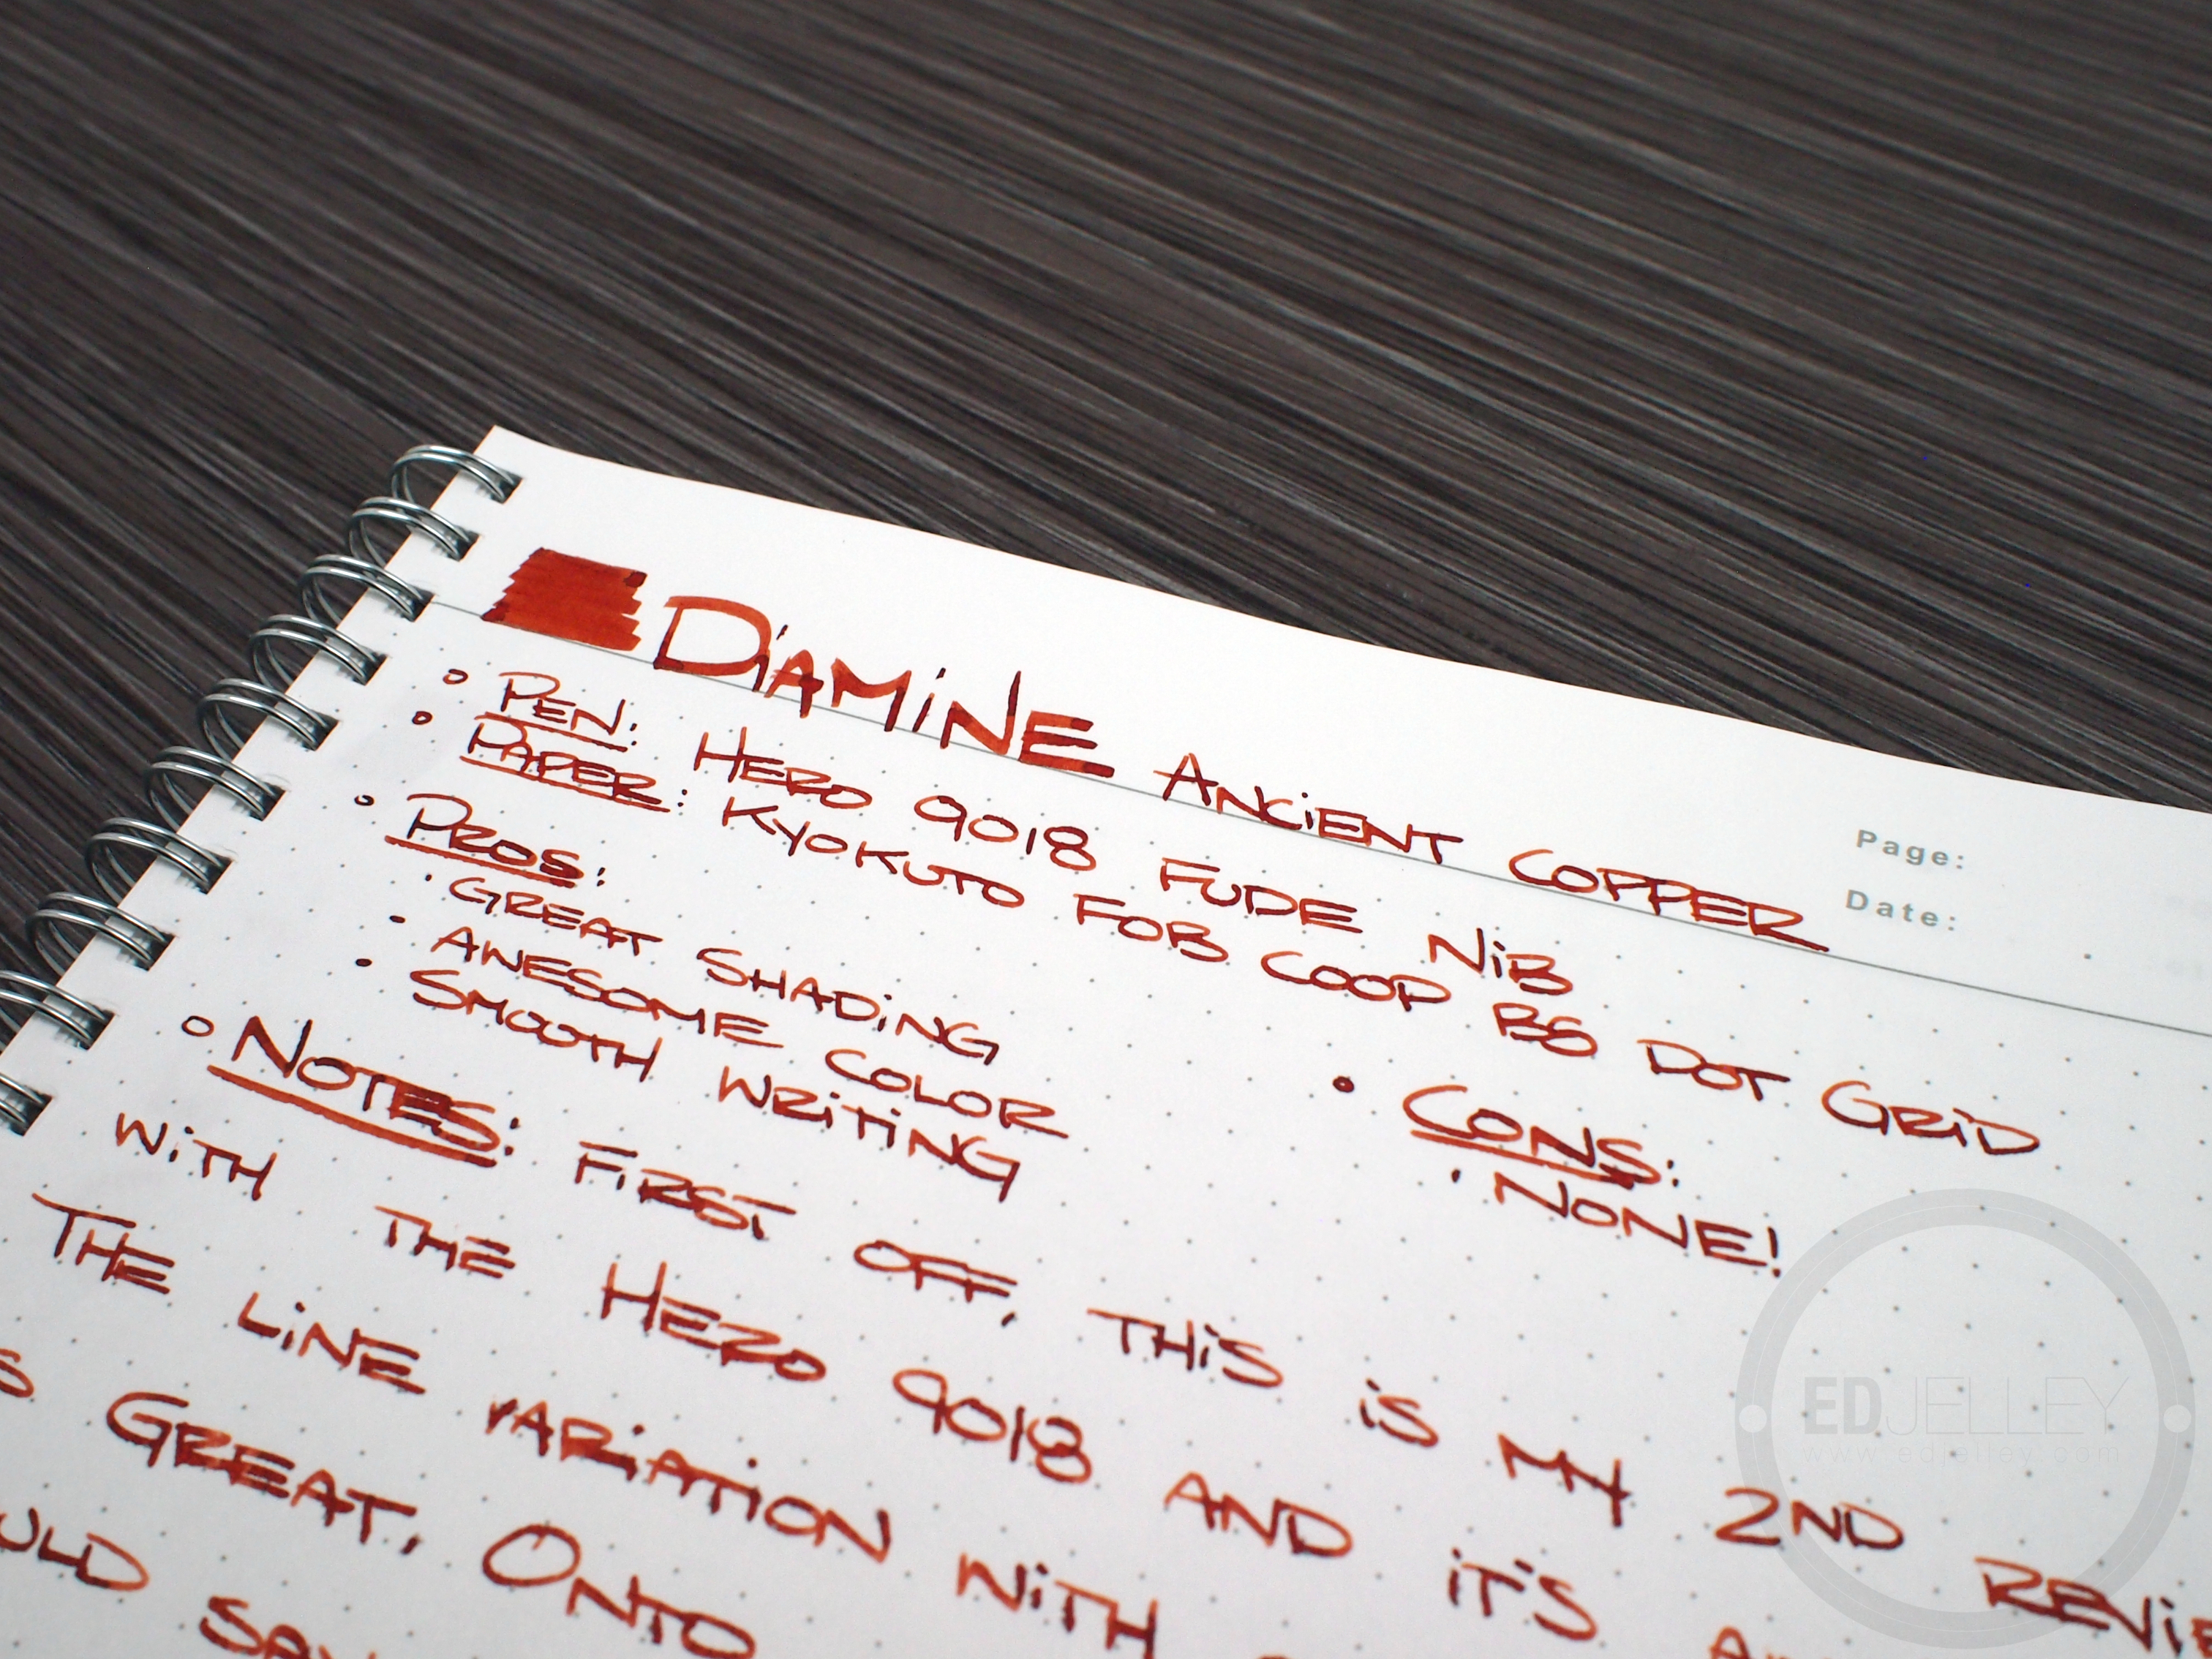 Diamine Ancient Copper
Page:
Date:
Pen: Hero 9018 Fude Nib
Paper: Kyokuto FOB COOP B5 Dot Grid
Pros:
Great Shading
Awesome Color
Smooth Writing
Cons:
None!
Notes: First off, this is my 2nd
with the Hero 9018 and it's
The line variation with
Great. Onto
EDJELLEY
www.edjelley.com